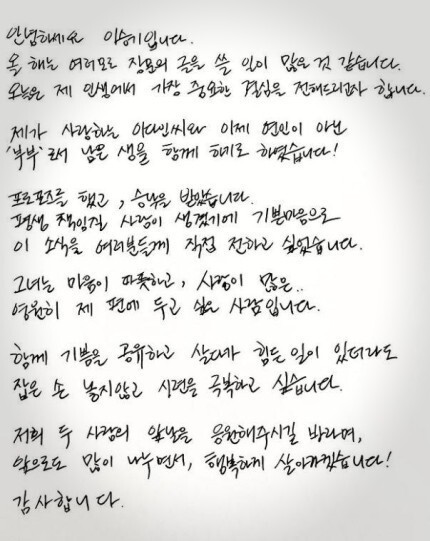 안녕하세요 이승기입니다.
올 해는 여러모로 장문의 글을 쓸 일이 많은 것 같습니다.
오늘은 제 인생에서 가장 중요한 결심을 전해드리고자 합니다.
제가 사랑하는 이다인씨와 이제 연인이 아닌
'부부'로서 남은 생을 함께 하기로 하였습니다!
프로포즈를 했고, 승낙을 받았습니다.
평생 책임질 사람이 생겼기에 기쁜마음으로
이 소식을 여러분들께 직접 전하고 싶었습니다.
그녀는 마음이 따뜻하고, 사랑이 많은..
영원히 제 편에 두고 싶은 사람입니다.
함께 기쁨을 공유하고 살다가 힘든일이 있더라도
잡은 손 놓지않고 시련을 극복하고 싶습니다.
저희 두 사람의 앞날을 응원해주시길 바라며,
앞으로도 많이 나누면서, 행복하게 살아가겠습니다!
감사합니다.